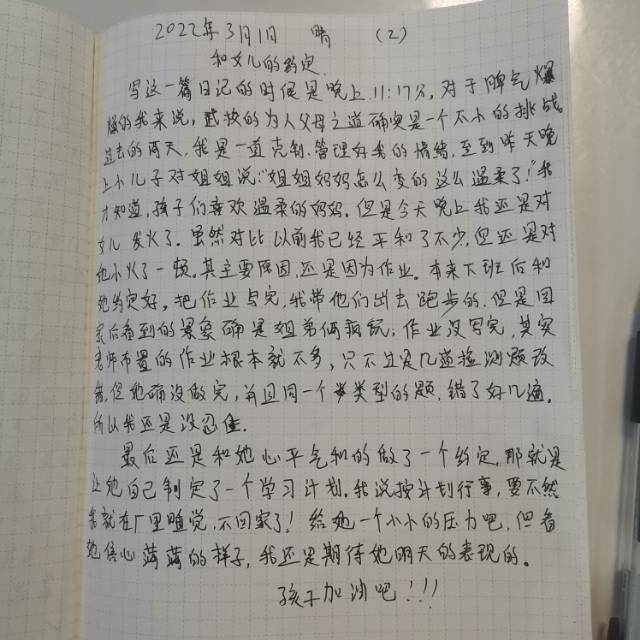 2022年3月1日 晴 (2)
和女儿的约定.
写这一篇日记的时候是晚上11:17分,对于脾气爆
爆的我来说,成快的为人父母之道确实是一个不小的挑战
过去的两天,我是一直克制.管理好我的情绪,至到昨天晚
上小儿子对姐姐说:"姐姐妈妈怎么变的这么温柔了!"我
才知道,孩子们喜欢温柔的妈妈.但是今天晚上我还是对
女儿发火了.虽然对比以前我已经平和了不少,但还是对
她小火了一顿.其主要原因,还是因为作业。本来下班后和
她约定好,把作业写完,我带他们出去跑步的.但是回
家后看到的景象确是姐弟俩疯玩;作业没写完,其实
老师布置的作业根本就不多,只不过是几道检测题改
错,但她确没做完,并且同一个类型的题,错了好几遍。
所以我还是没忍住.
最后还是和她心平气和的做了一个约定,那就是
让她自己制定了一个学习计划.我说按计划行事,要不然
我就在厂里睡觉,不回家了!给她一个小小的压力吧,但看
她信心满满的样子,我还是期待她明天的表现的。
孩子加油吧!!!